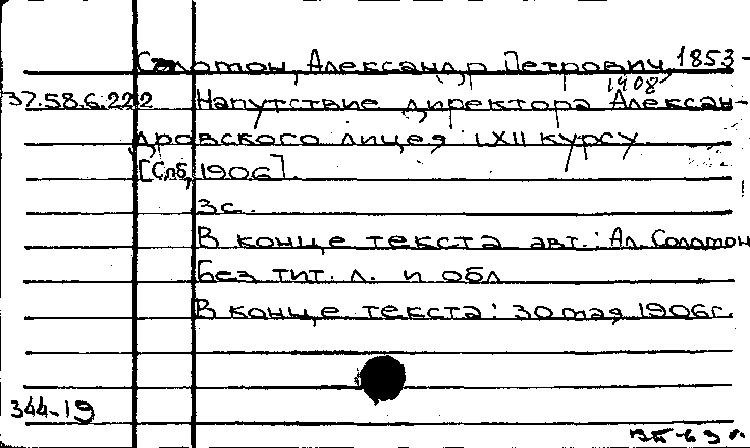 Саломон, Александр Петрович, 1853-
1908
37.58.6.222 Напутствие директора Алексан-
дровского лицея LXII курсу.
[Спб, 1906].
3с.
В конце текста авт.: Ал. Саломон
Без тит. л. и обл
В конце текста: 30 мая 1906г.
344-19